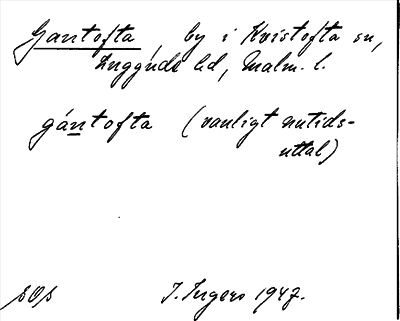 Gantofta, by i Kvistofta sn,
Luggude hd, Malm. l.
gántofta (vanligt nutids-
uttal)
SOS I. Ingers 1947.